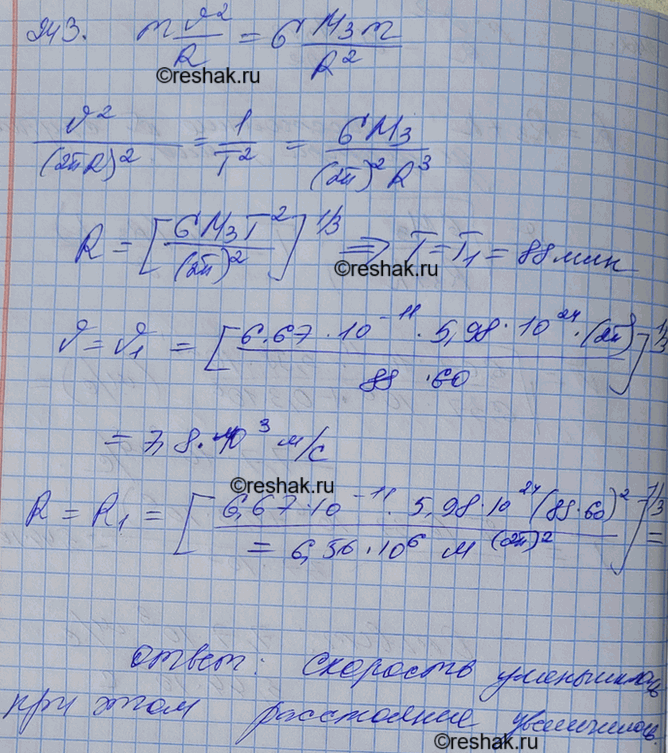 243. m ϑ²/R = G M₃m/R²
©reshak.ru
ϑ²/(2πR)² = 1/T² = G M₃/(2π)² R³
R = [G M₃ T²/(2π)²]^1/3 ⇒ T = T₁ = 88 мин
©reshak.ru
ϑ = ϑ₁ = [6.67 · 10⁻¹¹ · 5,98 · 10²⁴ · (2π)/88 · 60]^1/3
= 7,8 · 10³ м/с
©reshak.ru
R = R₁ = [6,67 · 10⁻¹¹ · 5,98 · 10²⁴ (88 · 60)²/(2π)²]^1/3 =
= 6,56 · 10⁶ м
ответ: скорость уменьшилась
при этом расстояние увеличилось